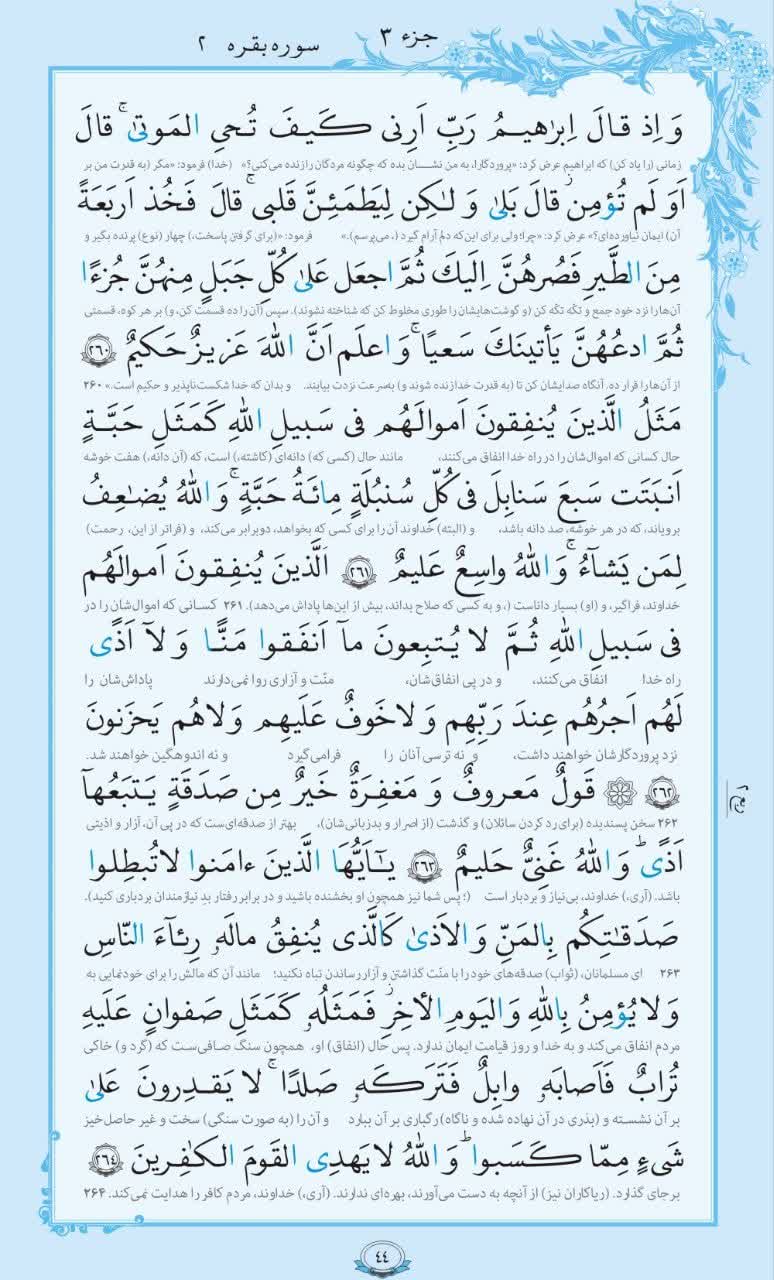 جزء ۳
سوره بقره ۲
وَ اِذ قالَ اِبرٰهیمُ رَبِّ اَرِنی کَیفَ تُحیِ المَوتیٰ ۚ قالَ
زمانی (را یاد کن) که ابراهیم عرض کرد: «پروردگارا، به من نشان بده که چگونه مردگان را زنده می‌کنی؟» (خدا) فرمود: «مگر (به قدرت من بر
اَوَ لَم تُؤمِن ۖ قالَ بَلیٰ وَ لٰکِن لِیَطمَئِنَّ قَلبی ۚ قالَ فَخُذ اَربَعَةً
آن) ایمان نیاورده‌ای؟» عرض کرد: «چرا؛ ولی برای این‌که دلم آرام گیرد (، می‌پرسم).» فرمود: «(برای گرفتن پاسخت،) چهار (نوع) پرنده بگیر و
مِنَ الطَّیرِ فَصُرهُنَّ اِلَیكَ ثُمَّ اجعَل عَلیٰ کُلِّ جَبَلٍ مِنهُنَّ جُزءًا
آن‌ها را نزد خود جمع و تکّه تکّه کن (و گوشت‌هایشان را طوری مخلوط کن که شناخته نشوند). سپس (آن را ده قسمت کن، و) بر هر کوه، قسمتی
ثُمَّ ادعُهُنَّ یَأتینَكَ سَعیًا ۚ وَ اعلَم اَنَّ اللّٰهَ عَزیزٌ حَکیمٌ ﴿۲۶۰﴾
از آن‌ها را قرار ده. آنگاه صدایشان کن تا (به قدرت خدا زنده شوند و) به‌سرعت نزدت بیایند. و بدان که خدا شکست‌ناپذیر و حکیم است.» ۲۶۰
مَثَلُ الَّذینَ یُنفِقونَ اَموالَهُم فی سَبیلِ اللّٰهِ کَمَثَلِ حَبَّةٍ
حال کسانی که اموال‌شان را در راه خدا انفاق می‌کنند، مانند حال (کسی که) دانه‌ای (کاشته،) است، که (آن دانه،) هفت خوشه
اَنبَتَت سَبعَ سَنابِلَ فی کُلِّ سُنبُلَةٍ مِائَةُ حَبَّةٍ ۗ وَ اللّٰهُ یُضٰعِفُ
برویاند، که در هر خوشه، صد دانه باشد، و (البته) خداوند آن را برای کسی که بخواهد، دوبرابر می‌کند، و (فراتر از این، رحمت)
لِمَن یَشآءُ ۚ وَ اللّٰهُ واسِعٌ عَلیمٌ ﴿۲۶۱﴾ اَلَّذینَ یُنفِقونَ اَموالَهُم
خداوند، فراگیر، و (او) بسیار داناست (، و به کسی که صلاح بداند، بیش از این‌ها پاداش می‌دهد). ۲۶۱ کسانی که اموال‌شان را در
فی سَبیلِ اللّٰهِ ثُمَّ لا یُتبِعونَ مآ اَنفَقوا مَنًّا وَ لآ اَذًی
راه خدا انفاق می‌کنند، و در پی انفاق‌شان، منّت و آزاری روا نمی‌دارند پاداش‌شان را
لَهُم اَجرُهُم عِندَ رَبِّهِم وَ لا خَوفٌ عَلَیهِم وَ لا هُم یَحزَنونَ
نزد پروردگارشان خواهند داشت، و نه ترسی آنان را فرا می‌گیرد و نه اندوهگین خواهند شد.
﴿۲۶۲﴾ قَولٌ مَعروفٌ وَ مَغفِرَةٌ خَیرٌ مِن صَدَقَةٍ یَتبَعُهآ
۲۶۲ سخن پسندیده (برای رد کردن سائلان) و گذشت (از اصرار و بدزبانی‌شان)، بهتر از صدقه‌ای‌ست که در پی آن، آزار و اذیتی
اَذًی ۗ وَ اللّٰهُ غَنِیٌّ حَلیمٌ ﴿۲۶۳﴾ یٰٓاَیُّهَا الَّذینَ ءامَنوا لا تُبطِلوا
باشد. (آری،) خداوند، بی‌نیاز و بردبار است (؛ پس شما نیز همچون او بخشنده باشید و در برابر رفتار بد نیازمندان بردباری کنید).
صَدَقٰتِکُم بِالمَنِّ وَ الاَذیٰ کَالَّذی یُنفِقُ مالَهو رِئآءَ النّاسِ
۲۶۳ ای مسلمانان، (ثواب) صدقه‌های خود را با منّت گذاشتن و آزار رساندن تباه نکنید؛ مانند آن که مالش را برای خودنمایی به
وَ لا یُؤمِنُ بِاللّٰهِ وَ الیَومِ الـٔاخِرِ ۖ فَمَثَلُهو کَمَثَلِ صَفوانٍ عَلَیهِ
مردم انفاق می‌کند و به خدا و روز قیامت ایمان ندارد. پس حال (انفاق) او، همچون سنگ صافی‌ست که (گرد و) خاکی
تُرابٌ فَاَصابَهو وابِلٌ فَتَرَکَهو صَلدًا ۖ لا یَقدِرونَ عَلیٰ
بر آن نشسته و (بذری در آن نهاده شده و ناگاه) رگباری بر آن ببارد و آن را (به صورت سنگی) سخت و غیر حاصل‌خیز
شَیءٍ مِمّا کَسَبوا ۗ وَ اللّٰهُ لا یَهدِی القَومَ الکٰفِرینَ ﴿۲۶۴﴾
برجای گذارد. (ریاکاران نیز) از آنچه به دست می‌آورند، بهره‌ای ندارند. (آری،) خداوند، مردم کافر را هدایت نمی‌کند. ۲۶۴
۴۴